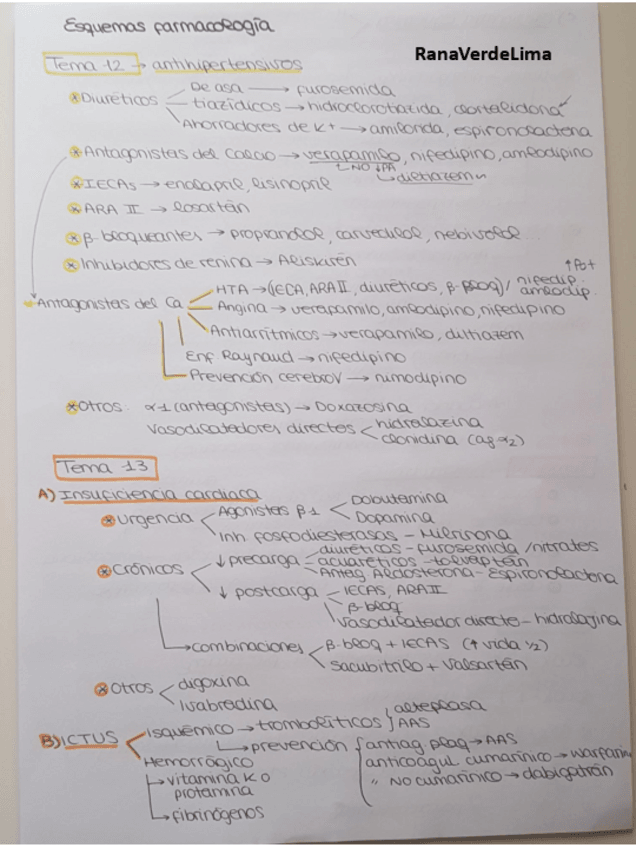 Esquemas farmacología
RanaVerdeLima
Tema 12 → antihipertensivos
* Diuréticos
De asa → furosemida
tiazídicos → hidroclorotiazida, clortalidona
Ahorradores de K+ → amilorida, espironolactona
* Antagonistas del Calcio → verapamilo, nifedipino, amlodipino
↳ NO ↓PA
↳ diltiazem
* IECAs → enalapril, lisinopril
* ARA II → losartán
* β-bloqueantes → propranolol, carvedilol, nebivolol...
* Inhibidores de renina → Aliskirén
Antagonistas del Ca
HTA → (IECA, ARA II, diuréticos, β-bloq) / nifedip. amlodip.
↑Pot
Angina → verapamilo, amlodipino, nifedipino
Antiarrítmicos → verapamilo, diltiazem
Enf Raynaud → nifedipino
Prevención cerebrov → nimodipino
* Otros. α-1 (antagonistas) → Doxazosina
Vasodilatadores directos
hidralazina
clonidina (ag α2)
Tema 13
A) Insuficiencia cardiaca
* Urgencia
Agonistas β1
Dobutamina
Dopamina
Inh fosfodiesterasas - Milrinona
* Crónicos
↓ precarga
diuréticos - furosemida / nitrates
acuaréticos - tolvaptán
Antag Aldosterona - Espironolactona
↓ postcarga
IECAS, ARA II
β-bloq
Vasodilatador directo - hidralazina
→ combinaciones
β-bloq + IECAS (↑ vida ½)
Sacubitrilo + Valsartán
* Otros
digoxina
Ivabradina
B) ICTUS
isquémico → trombolíticos
alteplasa
AAS
↳ prevención
antiag plaq → AAS
anticoagul cumarínico → warfarina
" No cumarínico → dabigatrán
Hemorrágico
→ vitamina K o
protamina
→ fibrinógenos